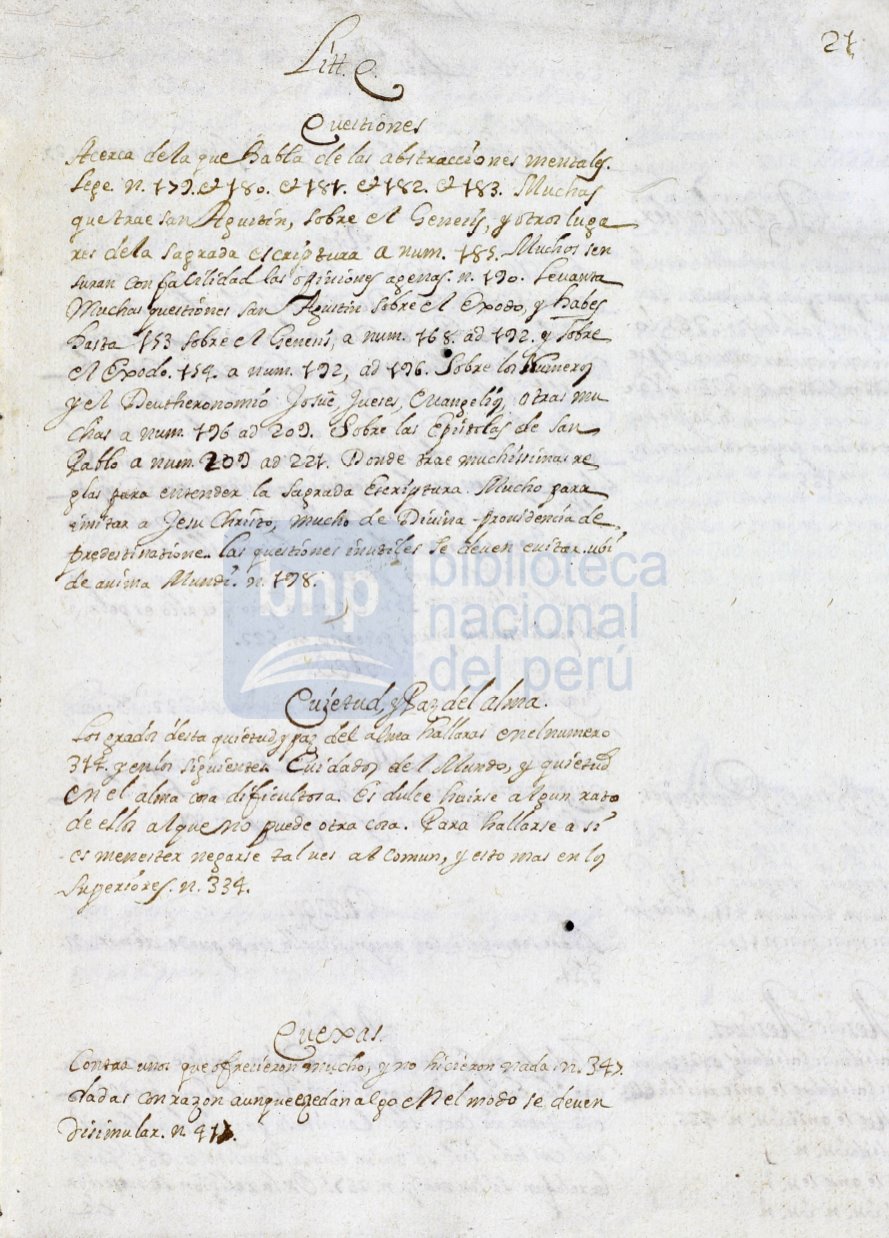 21
Litt. Q.
Questiones
Acerca de la que habla de las abstracciones mentales.
Lege. n. 179. et 180. et 181. et 182. et 183. Muchas
que trae san Agustin, sobre el Genesis, y otros luga
res de la sagrada escriptura a num. 185. Muchos sen
suran con facilidad las opiniones agenas. n. 190. Levanta
Muchas questiones san Agustin sobre el Exodo, y habes
hasta 153 sobre el Genesis, a num. 168. ad 192. y sobre
el Exodo. 154. a num. 192, ad 196. Sobre los Numeros
y el Deutheronomio Josue, Jueses, Evangelios, otras mu
chas a num. 196 ad 209. Sobre las Epistolas de san
Pablo a num. 209 ad 221. Donde trae muchissimas re
glas para entender la sagrada Escriptura. Mucho para
imitar a Jesu Christo, mucho de Divina providencia de
predestinatione. las questiones inutiles se deven evitar. ubi
de anima Mundi. n. 198.
bnp biblioteca nacional del perú
Quietud, y Paz del alma.
Los grados desta quietud, y paz del alma hallaras en el numero
314. y en los siguientes. Cuidados del Mundo, y quietud
en el alma cosa dificultosa. Es dulce huirse algun rato
de ellos al que no puede otra cosa. Para hallarse a si
es menester negarse tal ves al comun, y esto mas en los
superiores. n. 334.
Quexas.
Contra unos que ofrecieron mucho, y no hicieron nada. n. 347.
dadas con razon aunque exedan algo en el modo se deven
disimular. n.